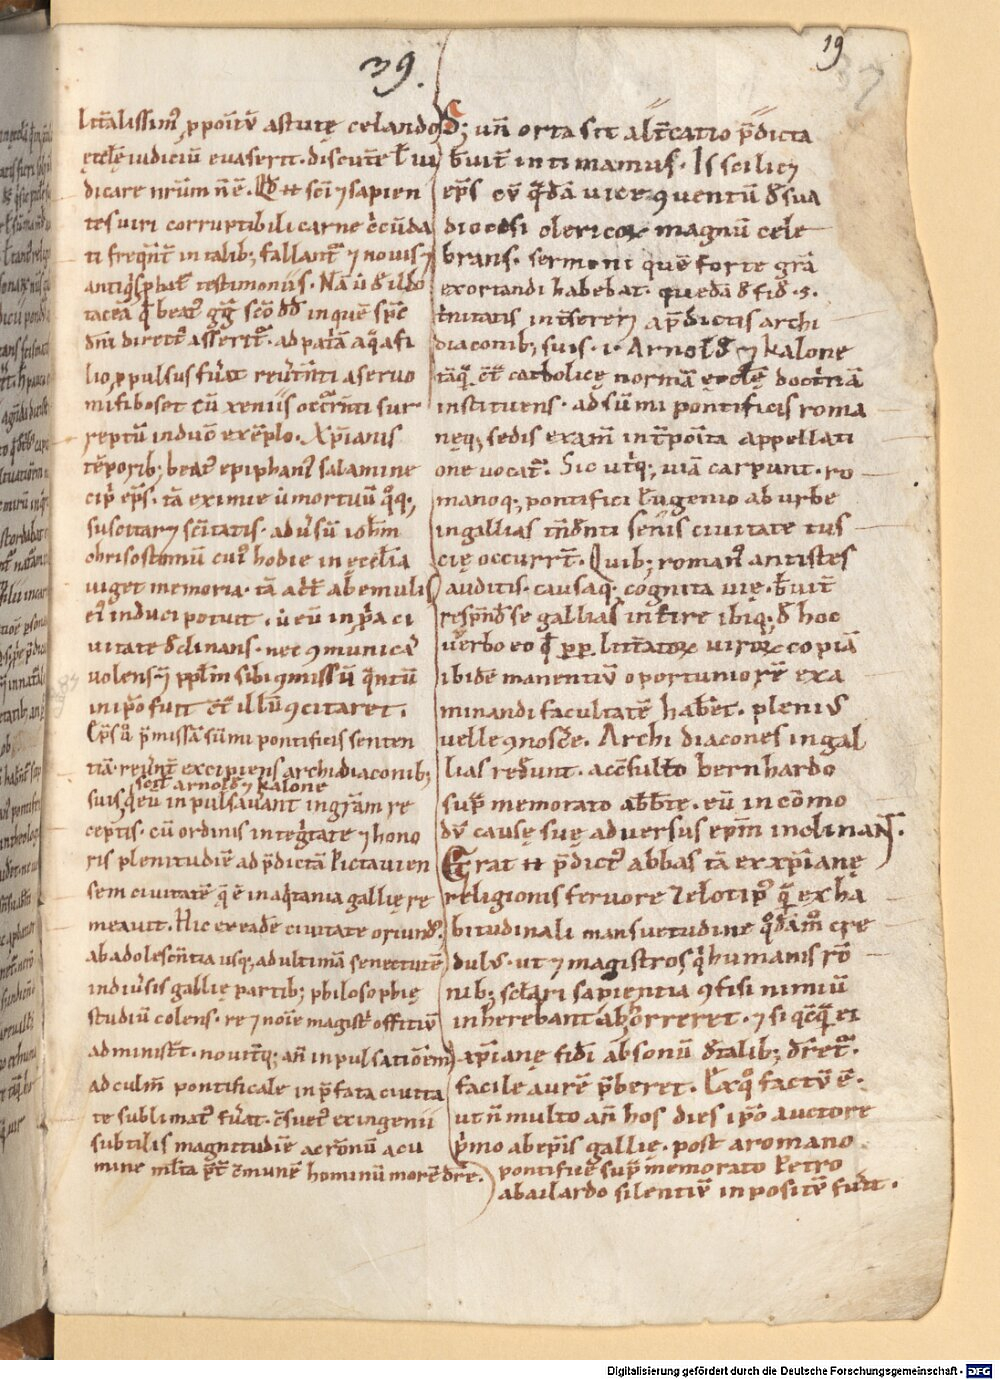 39.
19
37
astutę celando
ęccl̄ę iudiciū euaserit. discut̄e ł ui
dicare nr̄um n̄ ē. Qđ sc̄i ⁊ sapien
tes uiri corruptibili carne c̄cūda
ti freq̄nt̄ in talib; fallant̄ ⁊ nouis ⁊
antiq̄s testimoniis. Nā ut đ illo
taceā q̄ beat᷒ gg̃ sc̄o đđ in quē sp̄c
dn̄i direct᷒ asserit̄. ad pat̄ā a q̄ a fi
lio ꝓpulsus fūat reūt̄nti a seruo
mifiboset cū xeniis occr̄nti sur
reptū in duo exēplo. Xp̄ianis
tēporib; beat᷒ epiphani᷒ salamine
cip̄ ep̄s. tā eximie ut mortuū q̊q;
suscitar⁊ sc̄itatis. aduersū ioh̄m
chrisostomū cui᷒ hodie in ęccl̄ia
uiget memoria. tā abemulis
ei᷒ induci potuit. ut eū in p̄pa ci
uitate đclinans. nec ꝯmunicar̄
uolens ⁊ pp̄lm sibi ꝯmissū q̄ntū
in ip̄o fuit illū ꝯcitaret.
p̄missā sūmi pontificis senten
tiā reuer̄t̄ excipiens archidiaconib;
scil᷒ arnold̄ ⁊ kalone
suis q̄ eū inpulsauerant in gr̄am re
ceptis. cū ordinis inteḡtate ⁊ hono
ris plenitudiē ad p̄dictā Pictauien
sem ciuitatē q̄ ē in aq̄tania gallię re
meauit. Hic ex eadē ciuitate oriund᷒.
ab adolescētia usq; ad ultimā senectutē
in diuersis gallię partib; philosophię
studiū colens. re ⁊ noīe magist̄ offitiū
administ̄t. nouit̄q; an̄ inpulsatiōem
ad culm̄ pontificale in p̄fata ciuita
te sublimat᷒ fūat. c̄suet᷒ ex ingenii
subtilis magnitudiē ac r̄onū acu
mine ml̄ta p̄t c̄munē hominū morē dr̄e.
Sđ; un̄ orta sit alt̄catio p̄dicta
b̄uit̄ intimamus. Is scilic⁊
ep̄s cū q̄dā uice ꝯuentū đ sua
diocesi clericoꝝ magnū cele
brans. sermoni quē forte gr̄a
exortandi habebat. quedā đ fiđ .s.
t̄nitatis inserer⁊ a p̄dictis archi
diaconib; suis .i. Arnolđ ⁊ kalone
tāq̄ catholicę normā ęccl̄ę doct̄nā
instituens. ad sūmi pontificis roma
neq; sedis exam̄ int̄poīta appellati
one uocat̄. Sic ut̄q; uiā carpunt. ro
manoq; pontifici Eugenio ab urbe
in gallias tn̄đnti senis ciuitate tus
cię occurr̄t. Quib; roman᷒ antistes
auditis. causaq; cognita uię. b̄uit̄
resp̄nđ se gallias int̄ire ibiq; đ hoc
verbo eo q̄ ꝓꝑ litt̄atoꝝ uiroꝝ copiā
ibidē manentiū oportunio rē exa
minandi facultatē hab̄et. pleniꝰ
uelle ꝯnosc̄e. Archidiacones in gal
lias redeunt. ac c̄sulto bernhardo
sup̄memorato abb̄te. eū in cōmo
dū causę suę aduersus ep̄m inclinant.
Erat p̄dict᷒ abbas tā ex xp̄ianę
religionis feruore zelotip᷒ q̄ ex ha
bitudinali mansuetudine q̊dām̊ cre
dul᷒. ut ⁊ magistros q̄ humanis rō
nib; sc̄lari sapientia ꝯfisi nimiū
inherebant abhorreret. ⁊ si q̄cq̄ ei
xp̄ianę fidī absonū đ talib; dr̄et̄.
facile aurē p̄beret. Ex q̊ factū ē.
ut n̄ multo an̄ hos dies ip̄o auctore
p̄mo ab ep̄is gallię. post a romano
pontifice sup̄memorato Petro
abailardo silentiū inpositū fuit.
Digitalisierung gefördert durch die Deutsche Forschungsgemeinschaft - DFG